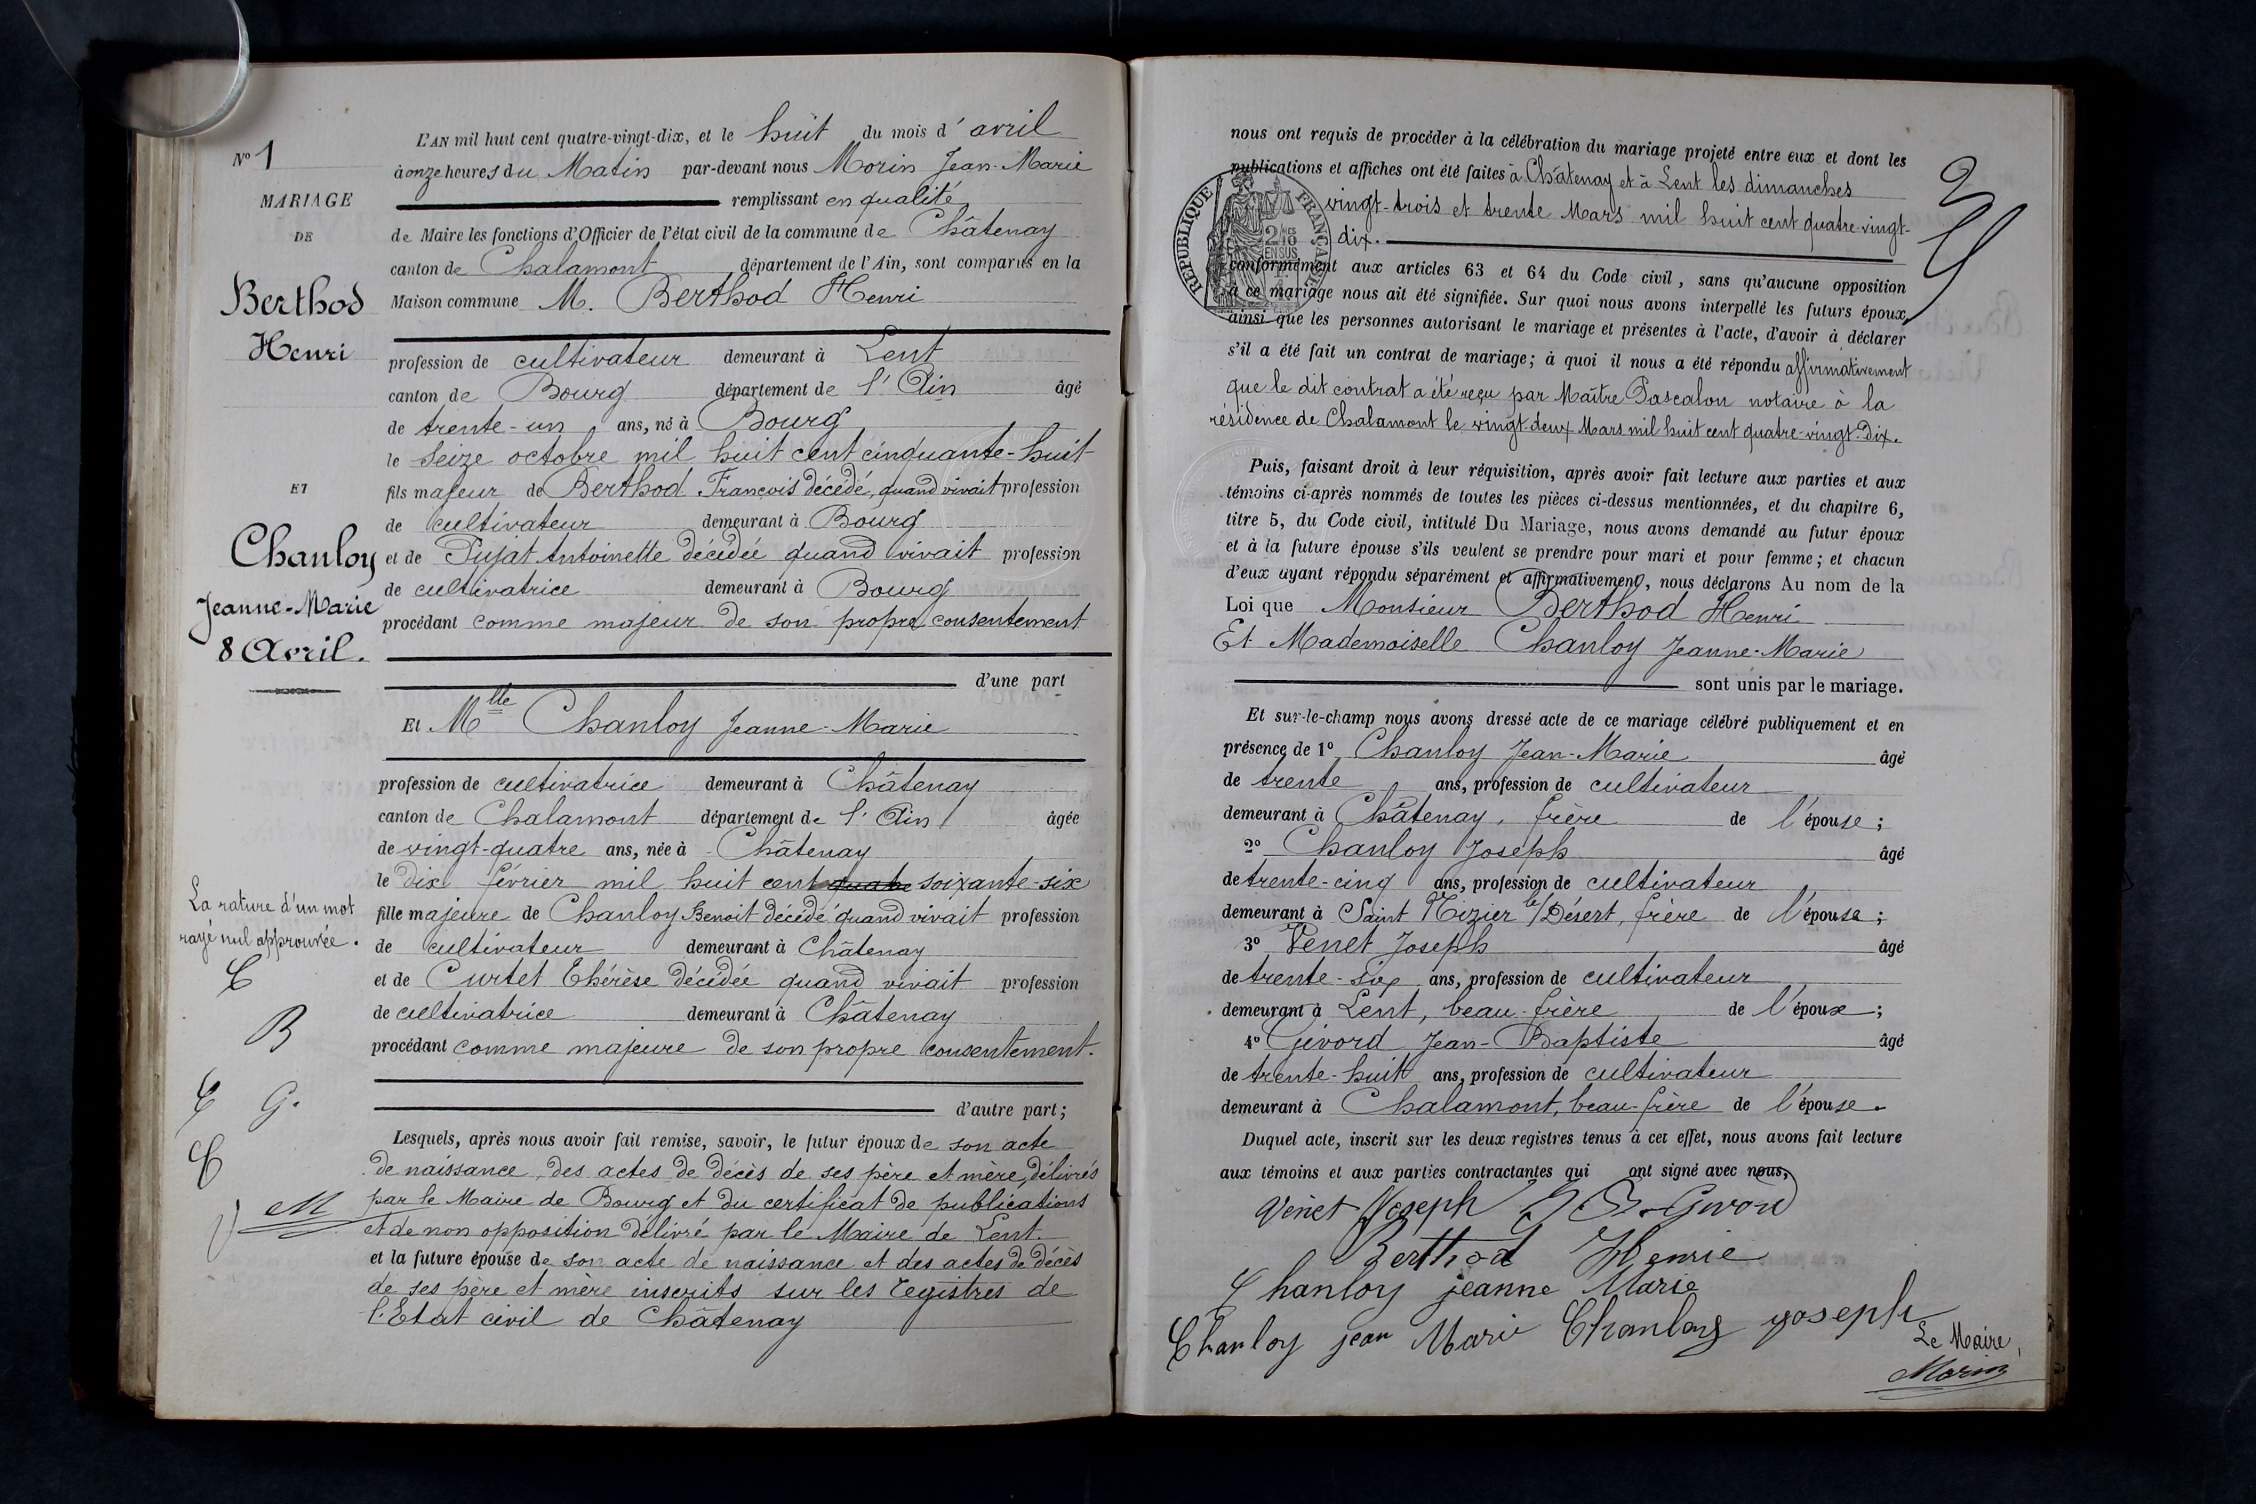 L'AN mil huit cent quatre-vingt-dix, et le huit du mois d'avril
N° 1
à onze heures du Matin par-devant nous Morin Jean-Marie
MARIAGE
remplissant en qualité
DE
de Maire les fonctions d'Officier de l'état civil de la commune de Châtenay
canton de Chalamont département de l'Ain, sont comparus en la
Berthod
Maison commune M. Berthod Henri
Henri
profession de cultivateur demeurant à Lent
canton de Bourg département de l'Ain âgé
de trente-un ans, né à Bourg
le seize octobre mil huit cent cinquante-huit
ET
fils majeur de Berthod François décédé, quand vivait profession
de cultivateur demeurant à Bourg
Chanloy
et de Pujat Antoinette décédée quand vivait profession
de cultivatrice demeurant à Bourg
Jeanne-Marie
procédant comme majeur de son propre consentement
8 Avril.
d'une part
Et Mlle Chanloy Jeanne-Marie
profession de cultivatrice demeurant à Châtenay
canton de Chalamont département de l'Ain âgée
de vingt-quatre ans, née à Châtenay
le dix février mil huit cent quatre soixante-six
La rature d'un mot
fille majeure de Chanloy Benoit décédé quand vivait profession
rayé nul approuvée.
de cultivateur demeurant à Châtenay
C
et de Curtet Thérèse décédée quand vivait profession
de cultivatrice demeurant à Châtenay
B
procédant comme majeure de son propre consentement.
C G.
d'autre part;
C
Lesquels, après nous avoir fait remise, savoir, le futur époux de son acte
de naissance, des actes de décès de ses père et mère, délivrés
par le Maire de Bourg et du certificat de publications
V M
et de non opposition délivré par le Maire de Lent.
et la future épouse de son acte de naissance et des actes de décès
de ses père et mère inscrits sur les registres de
l'Etat civil de Châtenay
nous ont requis de procéder à la célébration du mariage projeté entre eux et dont les
publications et affiches ont été faites à Châtenay et à Lent les dimanches
vingt-trois et trente Mars mil huit cent quatre-vingt-
dix.
RÉPUBLIQUE FRANÇAISE
2/10 EN SUS
conformément aux articles 63 et 64 du Code civil, sans qu'aucune opposition
à ce mariage nous ait été signifiée. Sur quoi nous avons interpellé les futurs époux,
ainsi que les personnes autorisant le mariage et présentes à l'acte, d'avoir à déclarer
s'il a été fait un contrat de mariage; à quoi il nous a été répondu affirmativement
que le dit contrat a été reçu par Maître Pascalon notaire à la
résidence de Chalamont le vingt deux Mars mil huit cent quatre-vingt-dix.
Puis, faisant droit à leur réquisition, après avoir fait lecture aux parties et aux
témoins ci-après nommés de toutes les pièces ci-dessus mentionnées, et du chapitre 6,
titre 5, du Code civil, intitulé Du Mariage, nous avons demandé au futur époux
et à la future épouse s'ils veulent se prendre pour mari et pour femme; et chacun
d'eux ayant répondu séparément et affirmativement, nous déclarons Au nom de la
Loi que Monsieur Berthod Henri
Et Mademoiselle Chanloy Jeanne-Marie
sont unis par le mariage.
Et sur-le-champ nous avons dressé acte de ce mariage célébré publiquement et en
présence de 1° Chanloy Jean-Marie âgé
de trente ans, profession de cultivateur
demeurant à Châtenay, frère de l'épouse;
2° Chanloy Joseph âgé
de trente-cinq ans, profession de cultivateur
demeurant à Saint Nizier le/Désert, frère de l'épouse;
3° Venet Joseph âgé
de trente-six ans, profession de cultivateur
demeurant à Lent, beau-frère de l'époux;
4° Givord Jean-Baptiste âgé
de trente-huit ans, profession de cultivateur
demeurant à Chalamont, beau-frère de l'épouse.
Duquel acte, inscrit sur les deux registres tenus à cet effet, nous avons fait lecture
aux témoins et aux parties contractantes qui ont signé avec nous,
Venet Joseph J B. Givord
Berthod Henrie
Chanloy jeanne Marie
Chanloy jean Marie Chanloy yoseph
Le Maire,
Morin